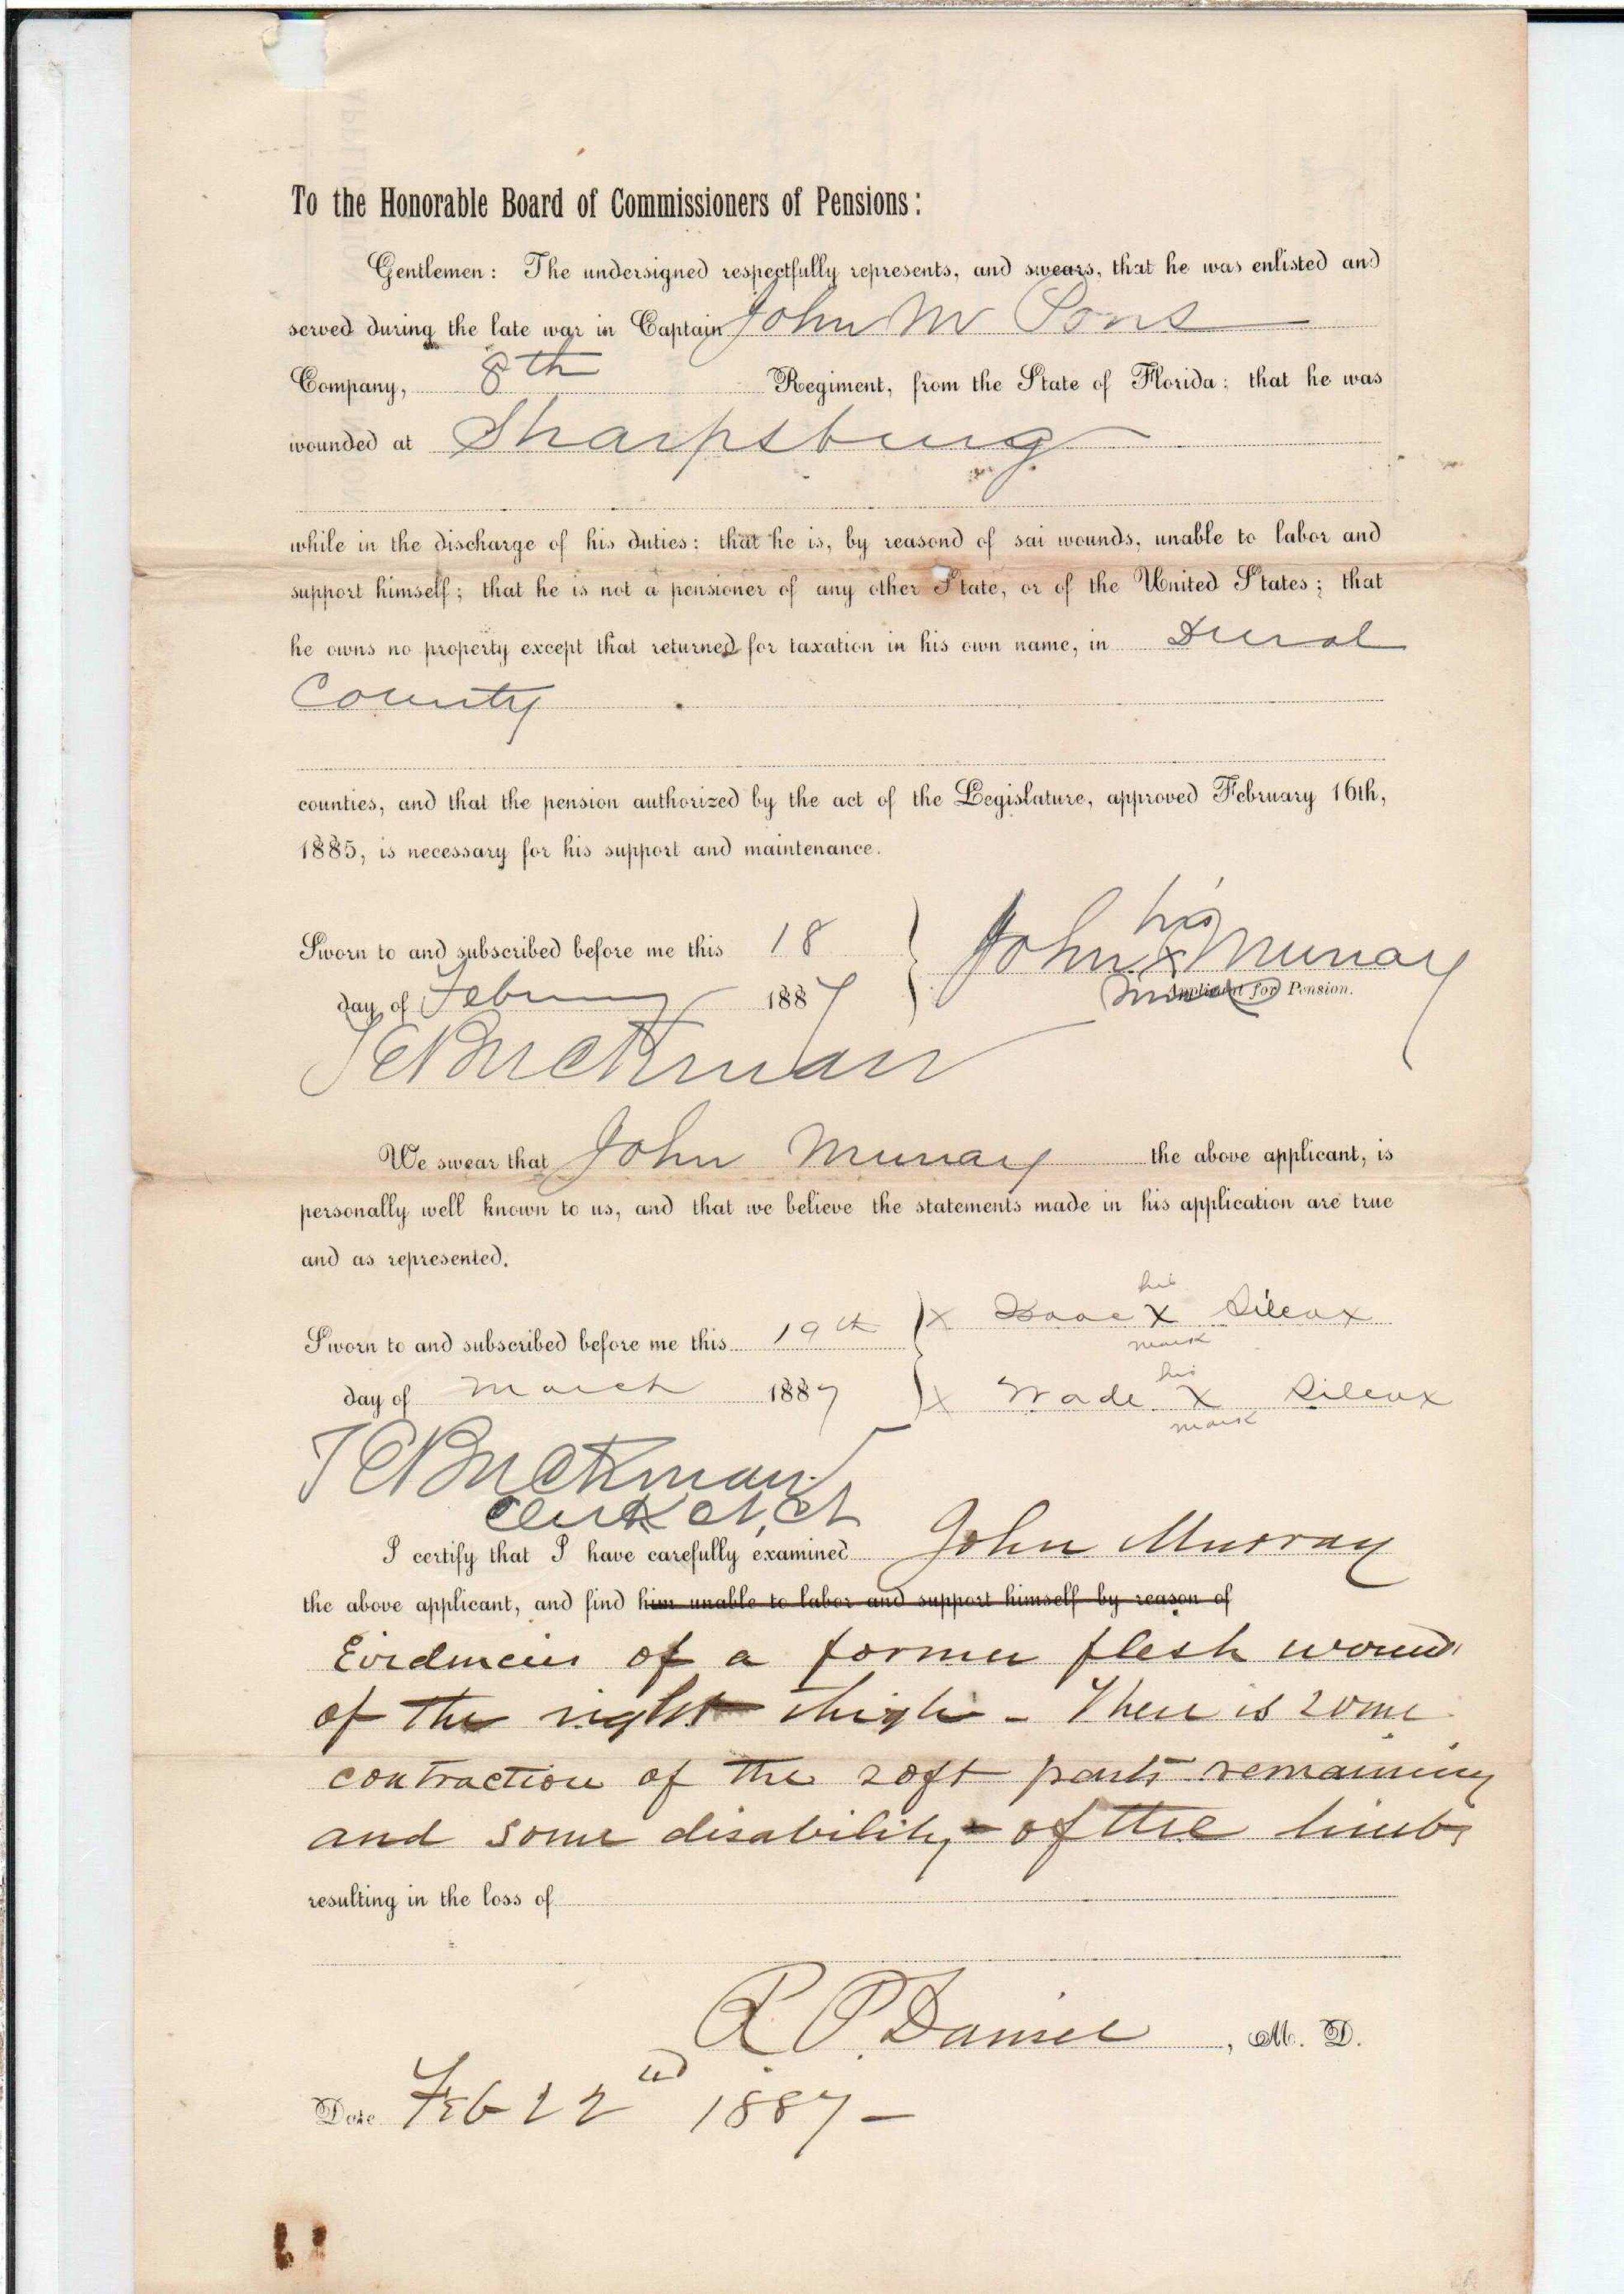 To the Honorable Board of Commissioners of Pensions:
Gentlemen: The undersigned respectfully represents, and swears, that he was enlisted and
served during the late war in Captain John M Pons
Company, 8th Regiment, from the State of Florida; that he was
wounded at Sharpsburg
while in the discharge of his duties; that he is, by reasond of sai wounds, unable to labor and
support himself; that he is not a pensioner of any other State, or of the United States; that
he owns no property except that returned for taxation in his own name, in Duval
County
counties, and that the pension authorized by the act of the Legislature, approved February 16th,
1885, is necessary for his support and maintenance.
his
Sworn to and subscribed before me this 18 } John X Murray
mark Applicant for Pension.
day of February 1887
T E Buckman
We swear that John Murray the above applicant, is
personally well known to us, and that we believe the statements made in his application are true
and as represented.
his
Sworn to and subscribed before me this 19th } X Isaac X Silcox
mark
his
day of March 1887 X Wade X Silcox
mark
T E Buckman
Clerk Ct. Ct
I certify that I have carefully examined John Murray
the above applicant, and find him unable to labor and support himself by reason of
of a former flesh wound
of the right thigh - There is some
contraction of the soft parts remaining
and some disability - of the limb,
resulting in the loss of
R. P. Daniel, M. D.
Date Feb 22nd 1887 -